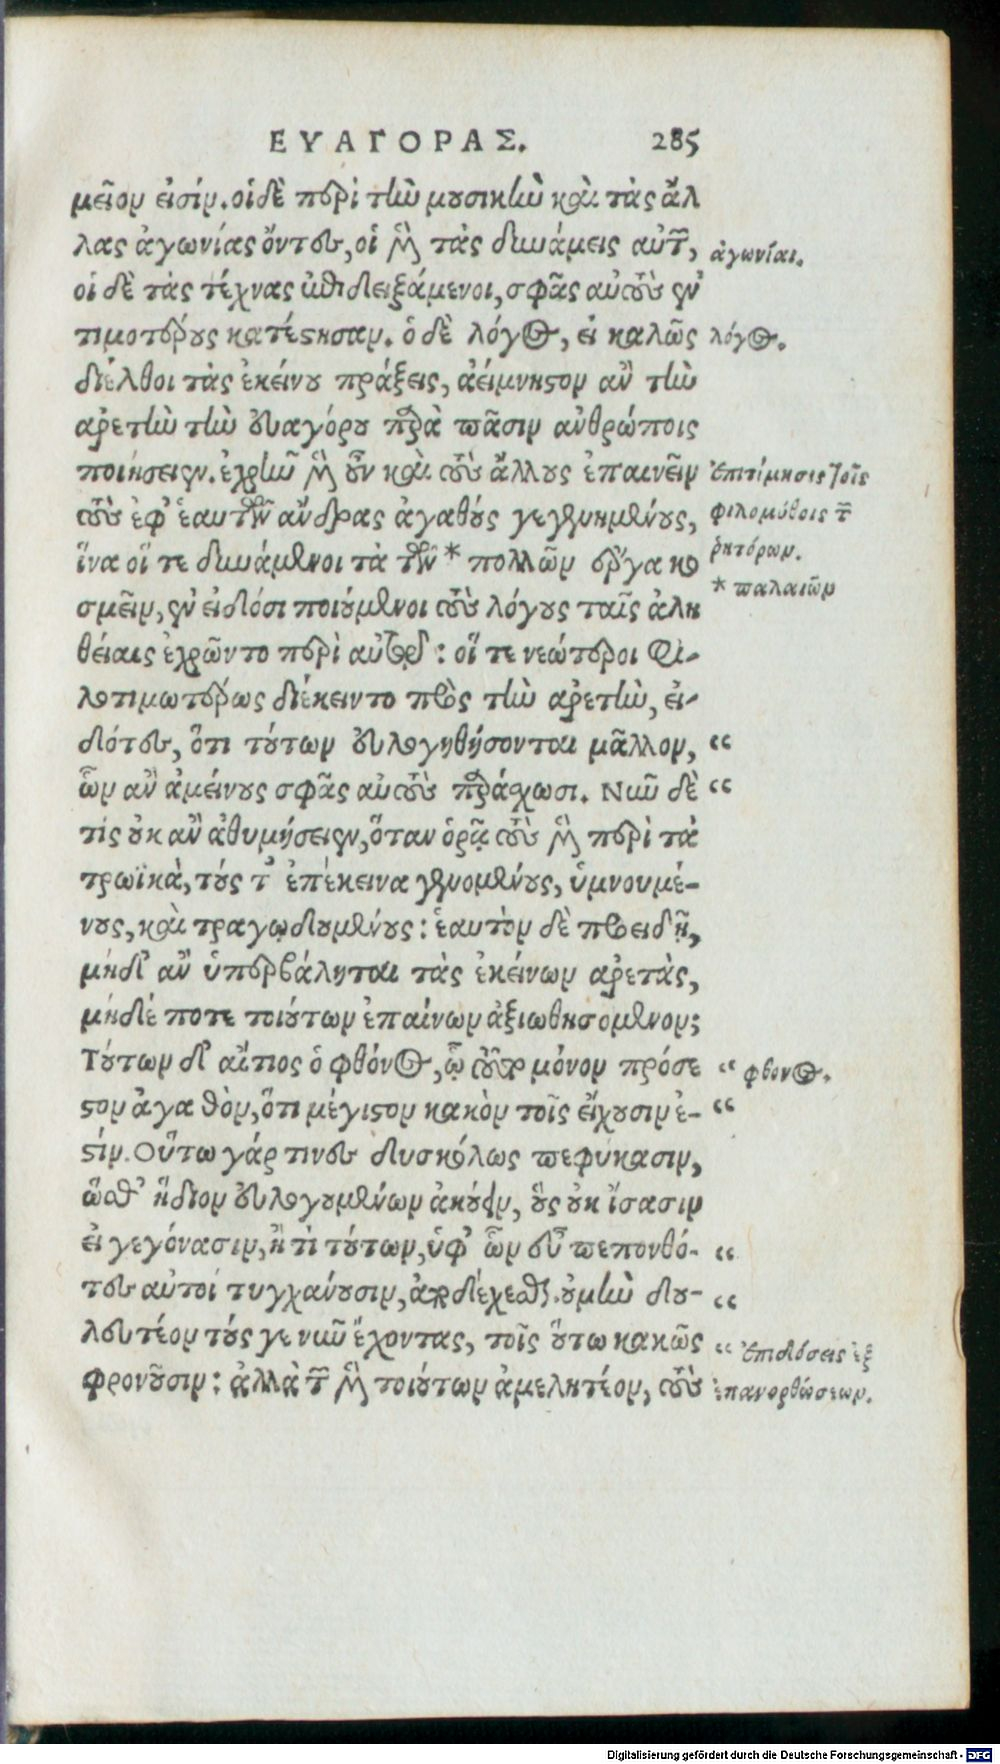 ΕΥΑΓΟΡΑΣ. 285
μεῖον εἰσίν. οἱ δὲ περὶ τὴν μουσικὴν καὶ τὰς ἄλ
λας ἀγωνίας ὄντες, οἱ μὲν τὰς δυνάμεις αὑτῶν,
ἀγωνίαι.
οἱ δὲ τὰς τέχνας ἐπιδειξάμενοι, σφᾶς αὐτοὺς ἐν
τιμοτέρους κατέστησαν. ὁ δὲ λόγος, εἰ καλῶς
λόγος.
διέλθοι τὰς ἐκείνου πράξεις, ἀείμνηστον ἂν τὴν
ἀρετὴν τὴν εὐαγόρου παρὰ πᾶσιν ἀνθρώποις
ποιήσειεν. ἐχρῆν μὲν οὖν καὶ τοὺς ἄλλους ἐπαινεῖν
ἐπιτίμησις τοῖς
τοὺς ἐφ' ἑαυτῶν ἄνδρας ἀγαθοὺς γεγενημένους,
φιλομύθοις τῶν
ἵνα οἵ τε δυνάμενοι τὰ τῶν * πολλῶν ἔργα κο
ῥητόρων.
* παλαιῶν
σμεῖν, ἐν εἰδόσι ποιούμενοι τοὺς λόγους ταῖς ἀλη
θείαις ἐχρῶντο περὶ αὐτῶν: οἵ τε νεώτεροι φι-
λοτιμωτέρως διέκειντο πρὸς τὴν ἀρετὴν, εἰ-
δότες, ὅτι τούτων εὐλογηθήσονται μᾶλλον, “
ὧν ἂν ἀμείνους σφᾶς αὐτοὺς παράσχωσι. Νῦν δὲ “
τίς οὐκ ἂν ἀθυμήσειεν, ὅταν ὁρᾷ τοὺς μὲν περὶ τὰ
τρωϊκὰ, τούς τ' ἐπέκεινα γενομένους, ὑμνουμέ-
νους, καὶ τραγῳδουμένους: ἑαυτὸν δὲ προειδῇ,
μηδ' ἂν ὑπερβάληται τὰς ἐκείνων ἀρετὰς,
μηδέ ποτε τοιούτων ἐπαίνων ἀξιωθησόμενον;
Τούτων δ' αἴτιος ὁ φθόνος, ᾧ τοῦτο μόνον πρόσε “
φθόνος.
στον ἀγαθὸν, ὅτι μέγιστον κακὸν τοῖς ἔχουσιν ἐ- “
στίν. Οὕτω γάρ τινες δυσκόλως πεφύκασιν,
ὥσθ' ἥδιον εὐλογουμένων ἀκούειν, οὓς οὐκ ἴσασιν
εἰ γεγόνασιν, ἤ τι τούτων, ὑφ' ὧν εὖ πεπονθό- “
τες αὐτοὶ τυγχάνουσιν, ἀποδέχεσθαι. οὐ μὴν δου- “
λευτέον τούς γε νῦν ἔχοντας, τοῖς οὕτω κακῶς “
ἐπιδόσεις ἐξ
φρονοῦσιν: ἀλλὰ τῶν μὲν τοιούτων ἀμελητέον, τοὺς
ἐπανορθώσεων.
Digitalisierung gefördert durch die Deutsche Forschungsgemeinschaft - DFG